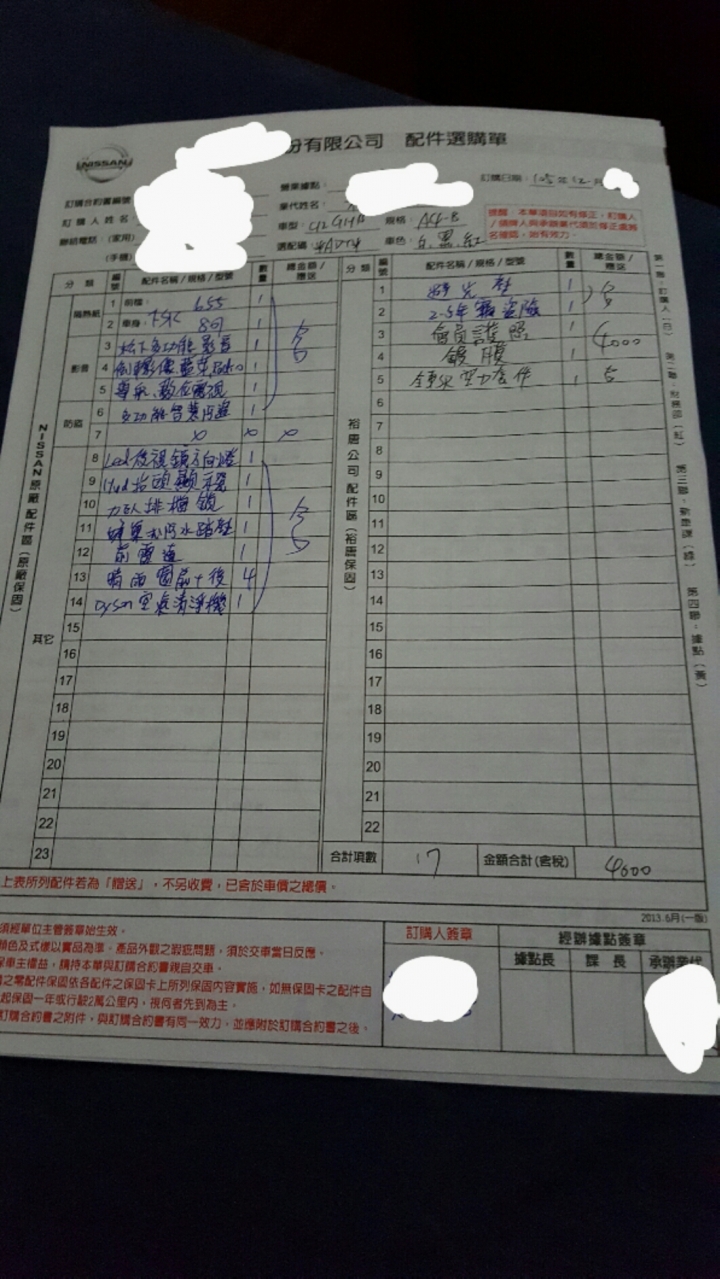 NISSAN
份有限公司 配件選購單
訂購合約書編號
營業據點:
訂購日期: 105年12月
訂購人姓名
業代姓名:
車型: 規格:
聯絡電話:(家用)
(手機)
選配碼: 車色: 白.黑.紅
提醒:本單項目如有修正,訂購人
/領牌人與承辦業代須於修正處簽
名確認,始有效力。
分類 編號 配件名稱/規格/型號 數量 總金額/應送
隔熱紙
1 前檔: 655 1
2 車身: FSK 1
影音
3 松下多功能影音 1
4 倒車影像藍芽 1
5 導航、數位電視 1
防盜
6 1
7 x x x
NISSAN原廠配件區(原廠保固)
其它
8 Led後視鏡方向燈 1
9 Hud抬頭顯示器 1
10 力巨人排檔鎖 1
11 1
12 前雷達 1
13 晴雨窗前+後 4
14 Dyson空氣清淨機 1
15
16
17
18
19
20
21
22
23
分類 編號 配件名稱/規格/型號 數量 總金額/應送
裕唐公司配件區(裕唐保固)
1 1
2 2-5年竊盜險 1
3 會員護照 1 4000
4 鍍膜 1
5 空力套件 1
6
7
8
9
10
11
12
13
14
15
16
17
18
19
20
21
22
合計項數 17 金額合計(含稅) 4000
第一聯:訂購人(白) 第二聯:財務部(紅) 第三聯:新車課(綠) 第四聯:據點(黃)
上表所列配件若為「贈送」,不另收費,已含於車價之總價。
2013.6月(一版)
須經單位主管簽章始生效。
顏色及式樣以實品為準。產品外觀之瑕疵問題,須於交車當日反應。
保車主權益,請持本單與訂購合約書親自交車。
之零配件保固依各配件之保固卡上所列保固內容實施,如無保固卡之配件自
起保固一年或行駛2萬公里內,視何者先到為主。
訂購合約書之附件,與訂購合約書有同一效力,並應附於訂購合約書之後。
訂購人簽章
經辦據點簽章
據點長 課長 承辦業代